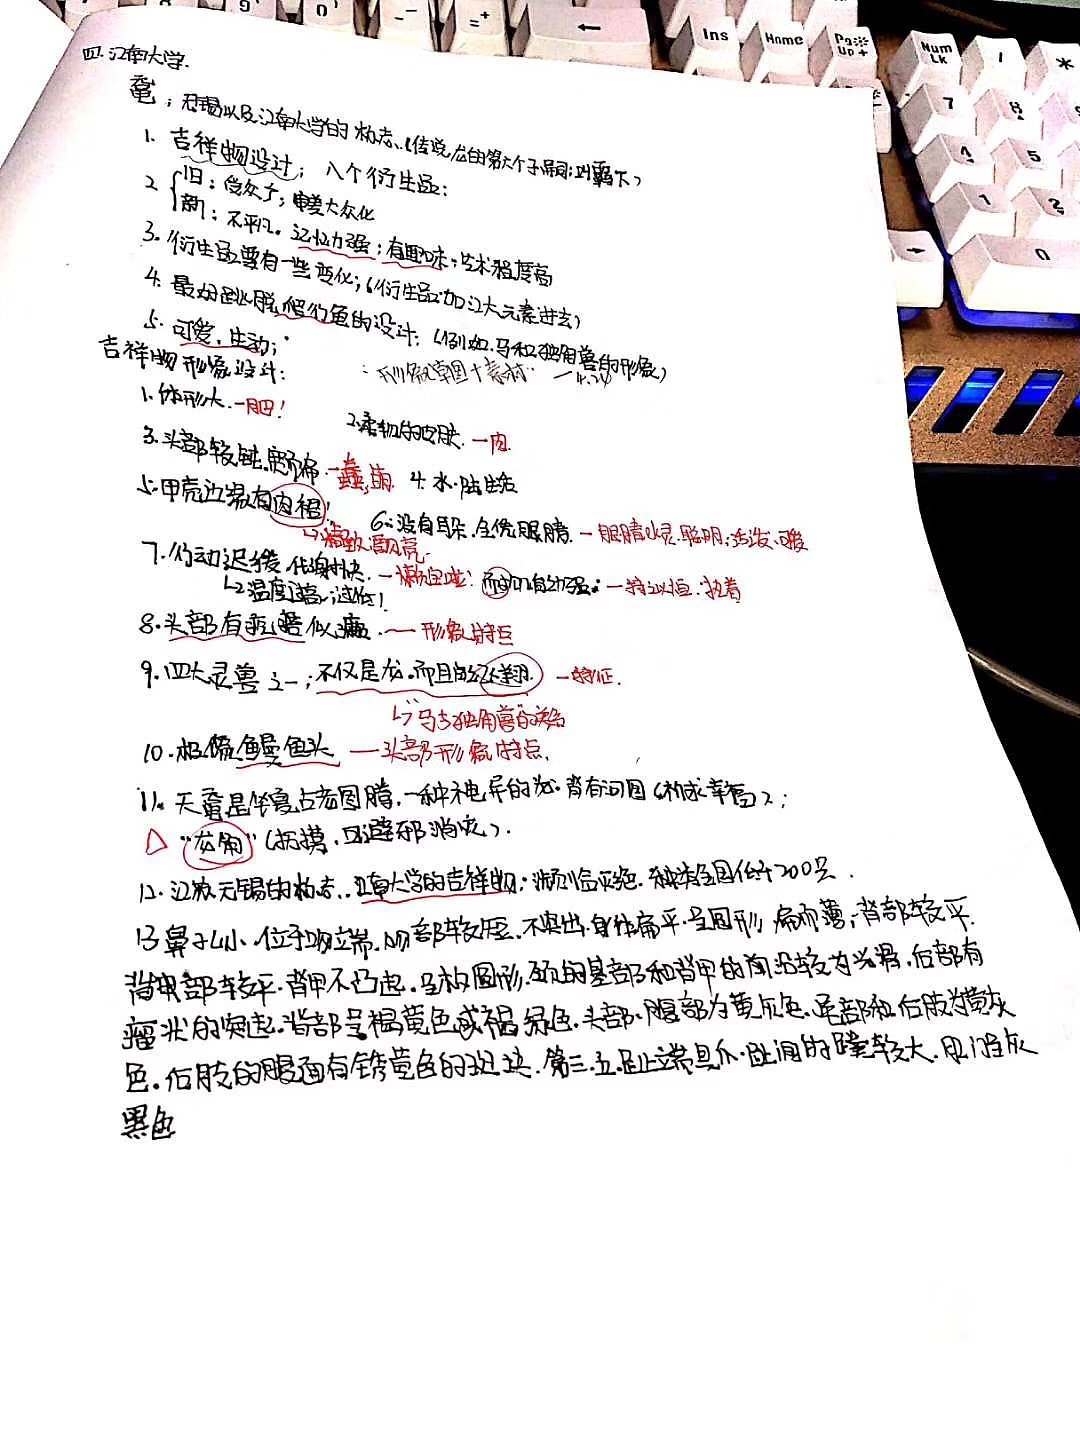 四.江南大学.
鼋;无锡以及江南大学的标志..(传说龙的第六个子嗣;叫霸下)
1. 吉祥物设计;八个衍生品:
2 旧:像众了;审美大众化
新:不平凡。记忆力强;有趣味;艺术程度高
3. 衍生品要有一些变化;(衍生品加江大元素进去)
4. 最好跳脱爬行龟的设计;(例如.马和独角兽的形象)
5. 可爱.生动;
吉祥物形象设计: 形象草图+素材
1.体形大.—肥! 2.柔软的皮肤.—肉
3.头部较钝.宽而扁—蠢,萌. 4.水.陆生活
5.甲壳边缘有肉裙!
6.没有耳朵.全凭眼睛.—眼睛灵.聪明;活泼.可爱
7.行动迟缓.代谢快.—懒宝啦! —持之以恒.执着
温度过高;过低!
8.头部有疣.—形象特点
9.四大灵兽之一;不仅是龙.而且 —特征.
马与独角兽的
10.极像鳗鱼头 —头部形象特点.
11.天鼋是华夏古老图腾.一种神异的龙.背有河图(祈求幸福);
△ "龙角"(抚摸.可避邪消灾).
12.江苏无锡的标志..江南大学的吉祥物;濒临灭绝.种类全国低于200只.
13鼻子小.位于吻端.吻部较短.不突出.身体扁平.呈圆形.扁而薄;背部较平.
背中部较平.背甲不凸起.呈椭圆形.颈的基部和背甲的前沿较为光滑.后部有
瘤状的突起.背部呈褐黄色或褐绿色.头部.腹部为黄灰色.尾部和后肢为黄灰
色.后肢的腹面有锈黄色的斑块.第三.五趾通常具爪.趾间的蹼较大.肛门呈灰
黑色